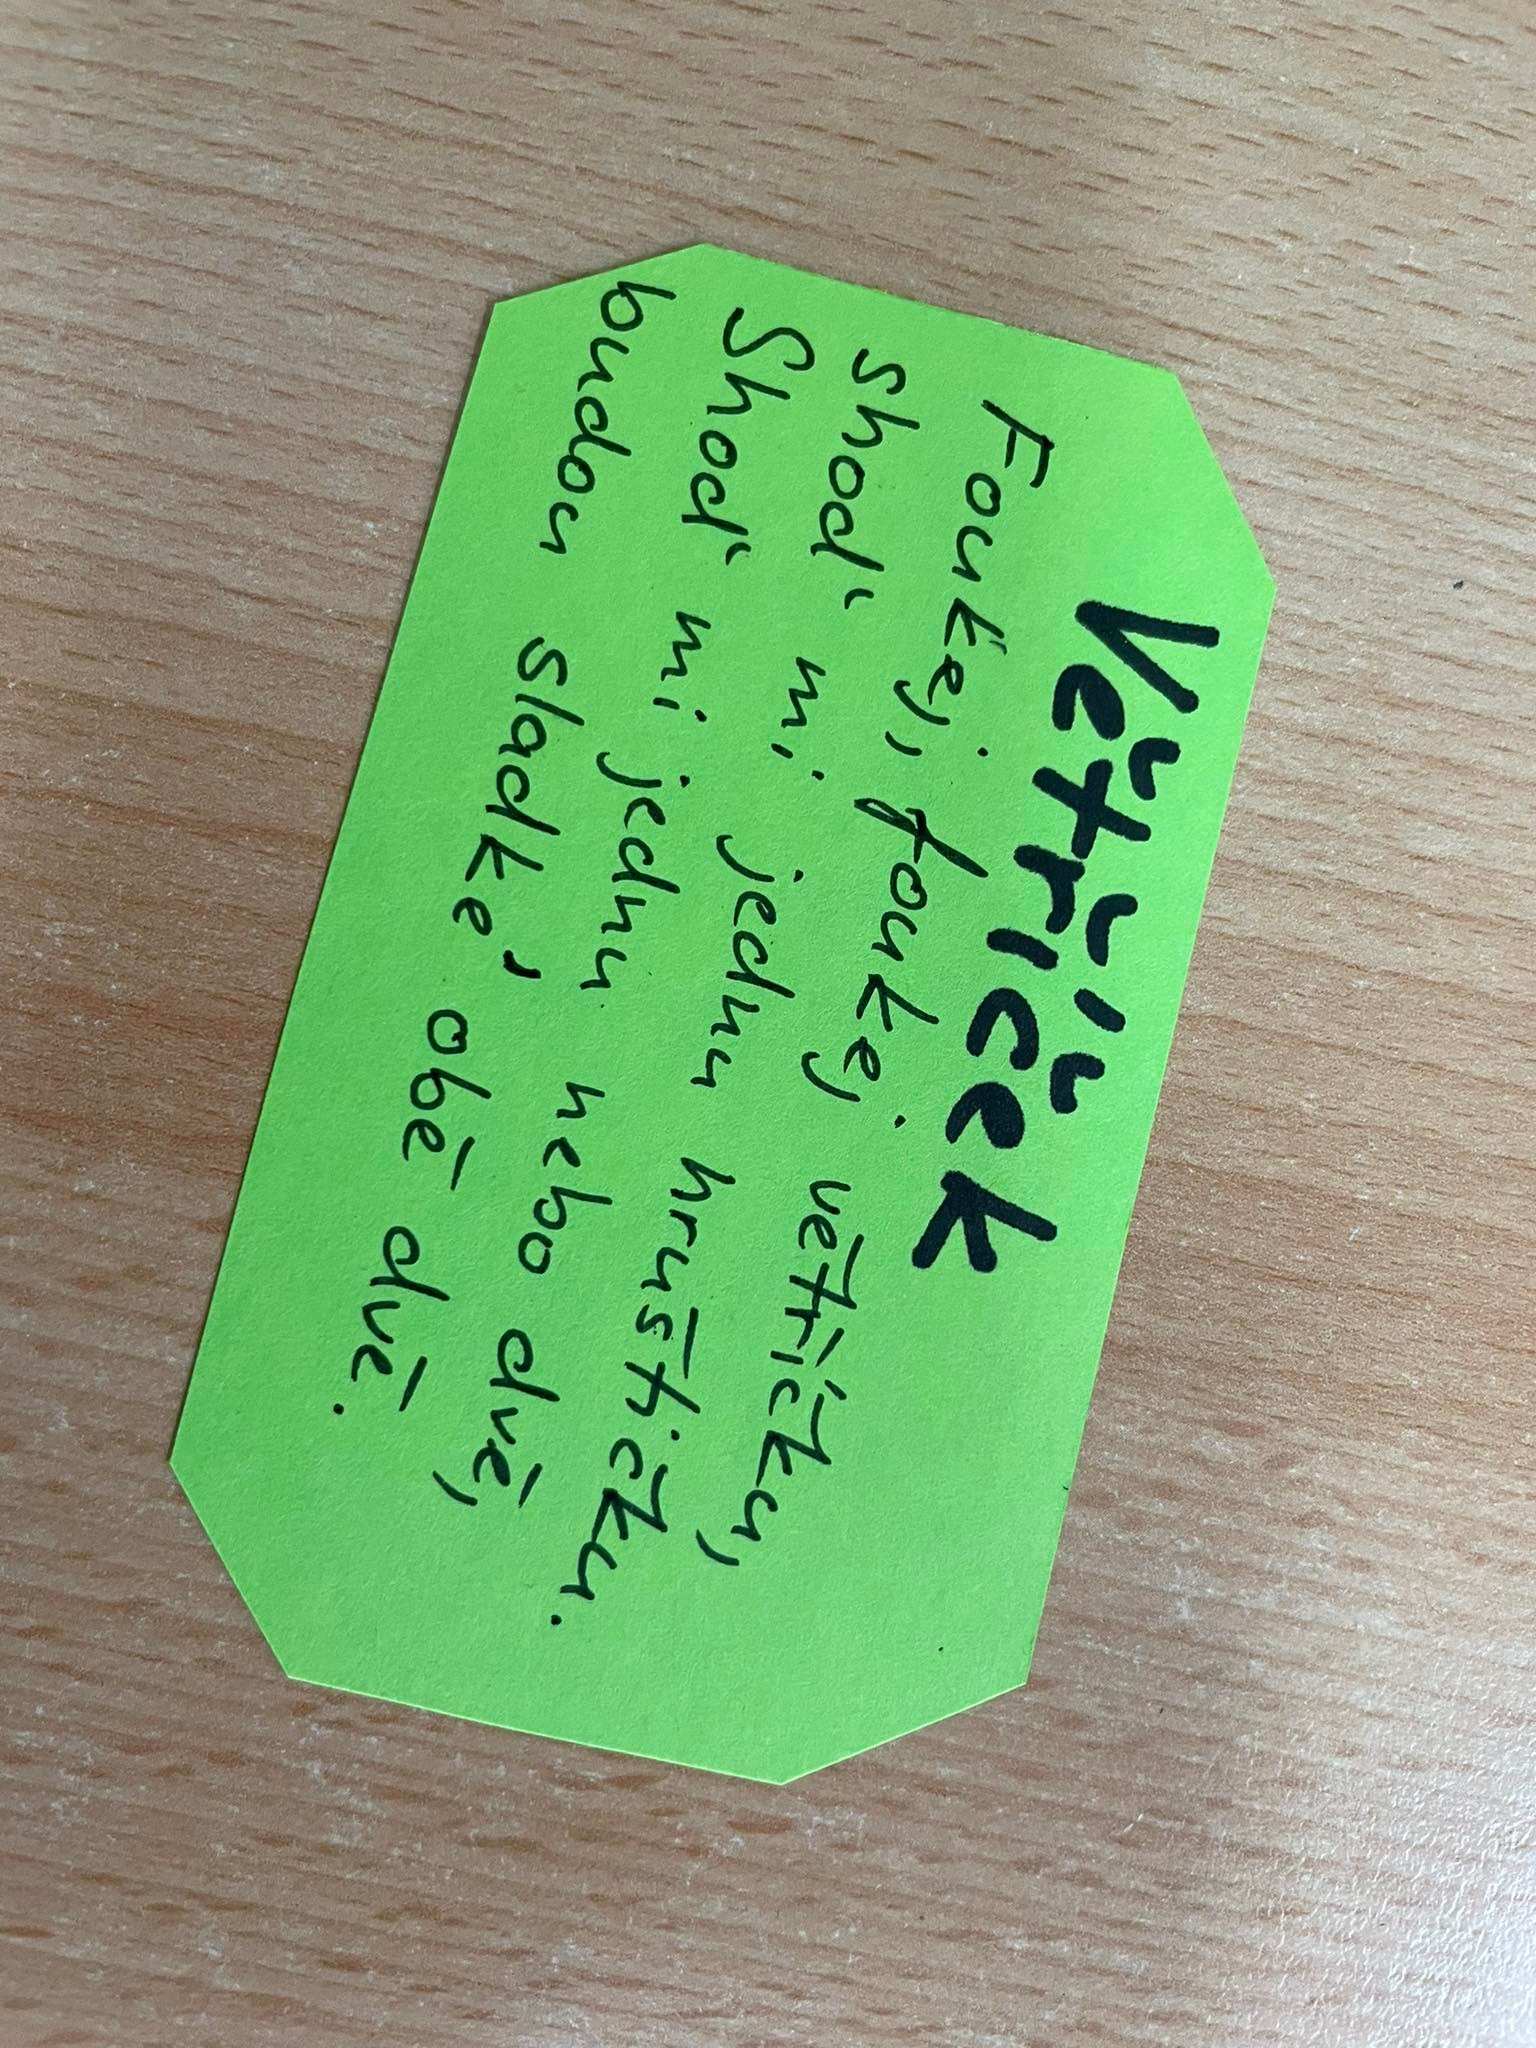 Větříček
Foukej, foukej větříčku,
shod' mi jednu hruštičku.
Shod' mi jednu nebo dvě,
budou sladké, obě dvě.